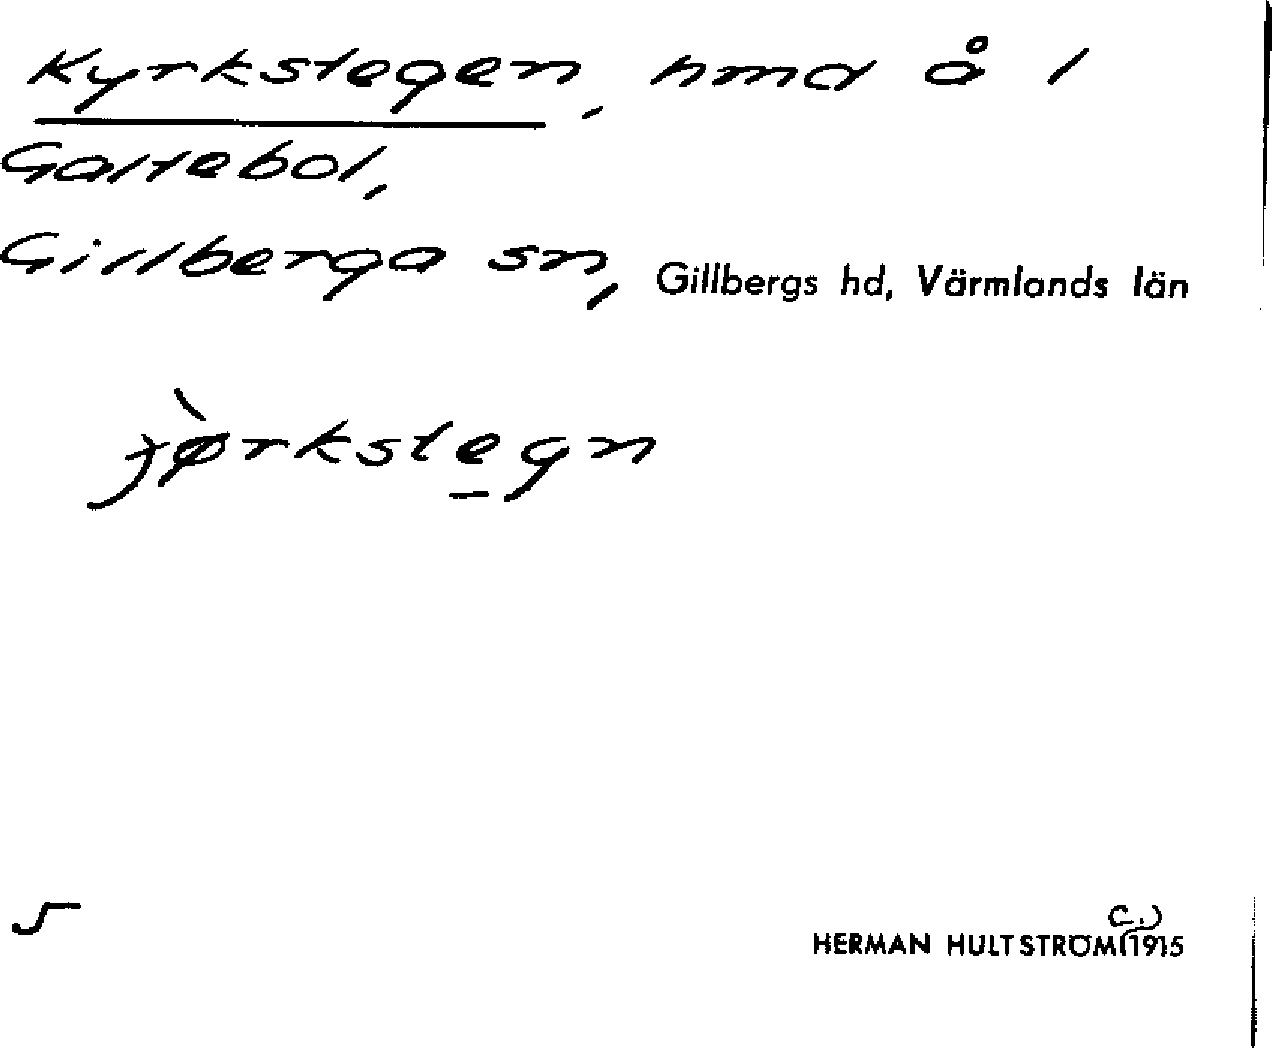 Kyrkstegen, hmd å 1
Galtebol,
Gillberga sn, Gillbergs hd, Värmlands län
jørkstegn
5
HERMAN HULTSTRÖM (c.) 1915